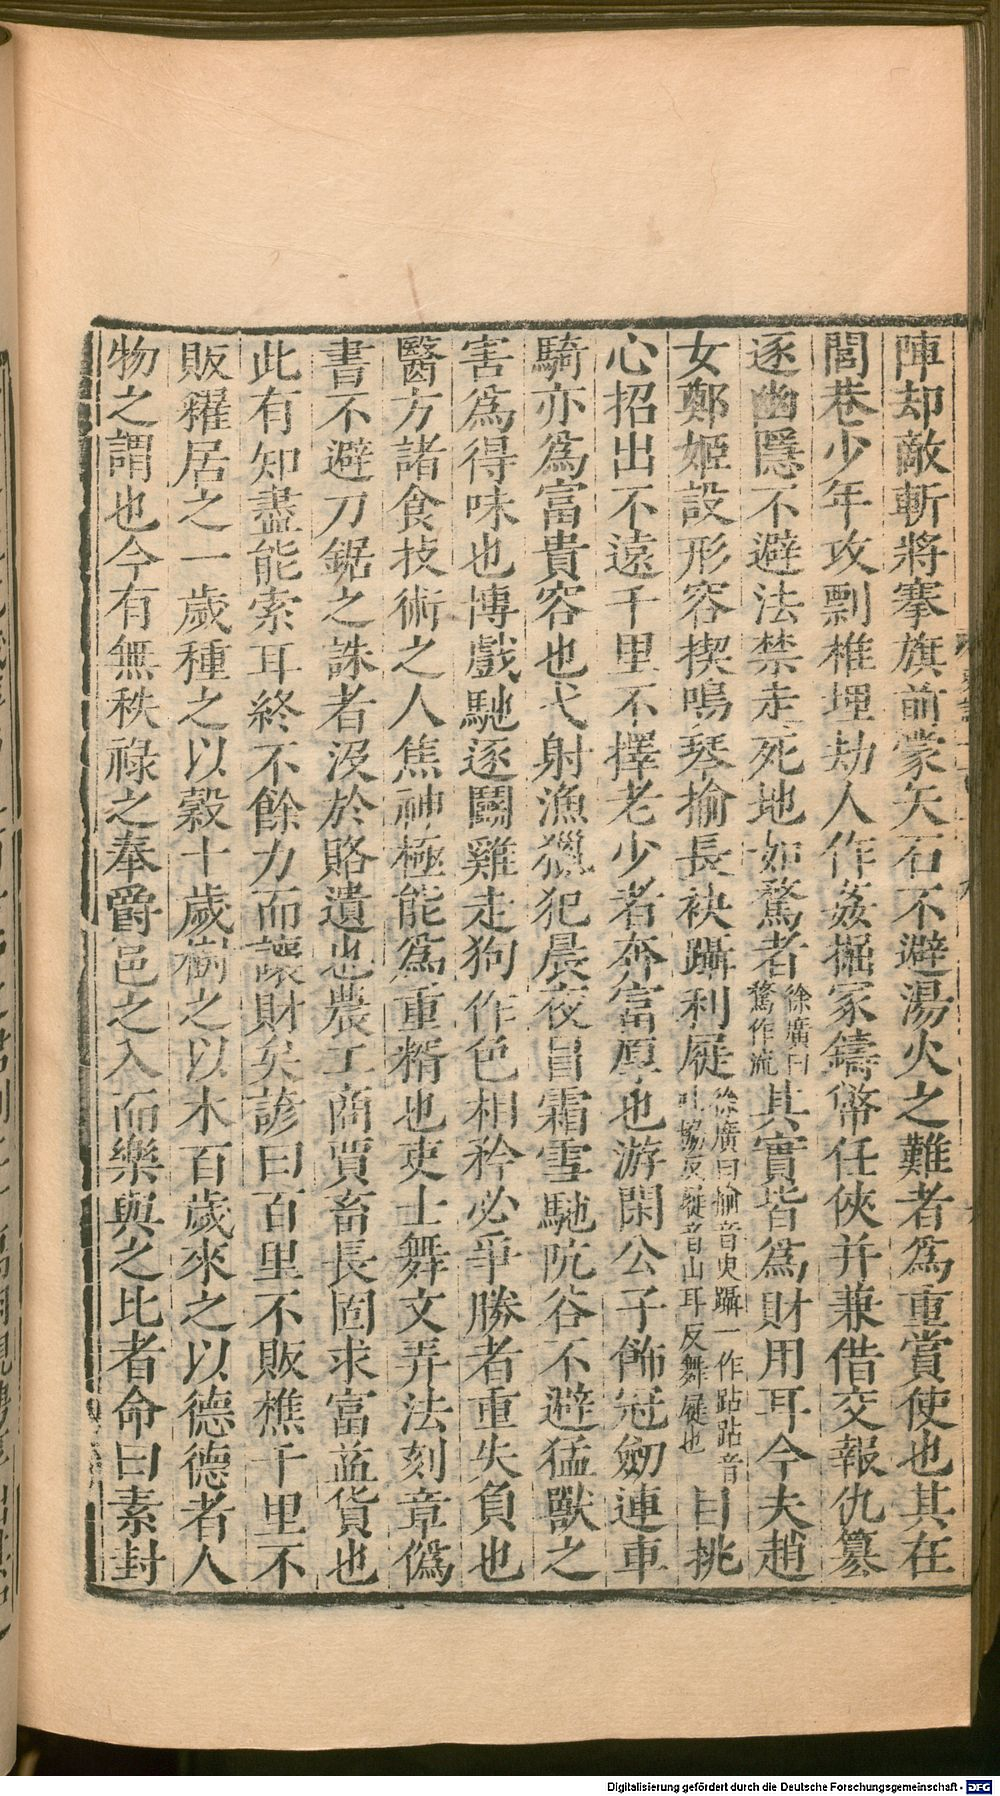 陣却敵斬將搴旗前蒙矢石不避湯火之難者爲重賞使也其在
閭巷少年攻剽椎埋劫人作姦掘冢鑄幣任俠并兼借交報仇篡
逐幽隱不避法禁走死地如騖者徐廣曰騖作流其實皆爲財用耳今夫趙
女鄭姬設形容揳鳴琴揄長袂躡利屣徐廣曰揄音臾躡一作跕跕音吐協反屣音山耳反舞屣也目挑
心招出不遠千里不擇老少者奔富厚也游閑公子飾冠劒連車
騎亦爲富貴容也弋射漁獵犯晨夜冒霜雪馳阬谷不避猛獸之
害爲得味也博戲馳逐鬪雞走狗作色相矜必爭勝者重失負也
醫方諸食技術之人焦神極能爲重糈也吏士舞文弄法刻章僞
書不避刀鋸之誅者沒於賂遺也農工商賈畜長固求富益貨也
此有知盡能索耳終不餘力而讓財矣諺曰百里不販樵千里不
販糴居之一歲種之以穀十歲樹之以木百歲來之以德德者人
物之謂也今有無秩祿之奉爵邑之入而樂與之比者命曰素封
Digitalisierung gefördert durch die Deutsche Forschungsgemeinschaft - DFG